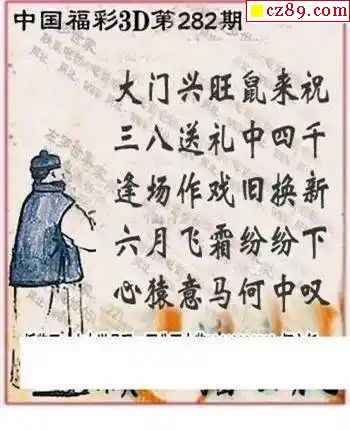 cz89.com
中国福彩3D第282期
大门兴旺鼠来祝
三八送礼中四千
逢场作戏旧换新
六月飞霜纷纷下
心猿意马何中叹